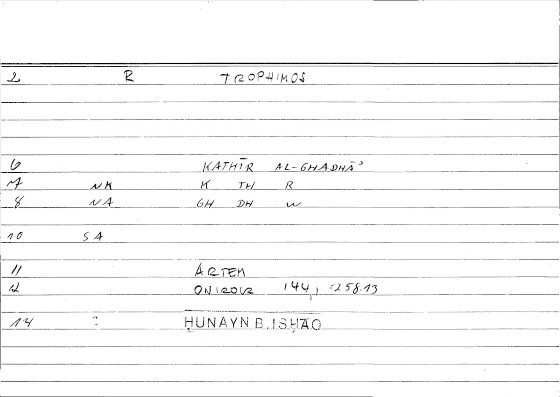 2 R TROPHIMOS
6 KATHĪR AL-GHADHĀʾ
7 NM K TH R
8 NA GH DH W
10 SA
11 ARTEM
12 ONIROCR 144,
14 ḤUNAYN B. ISḤĀQ